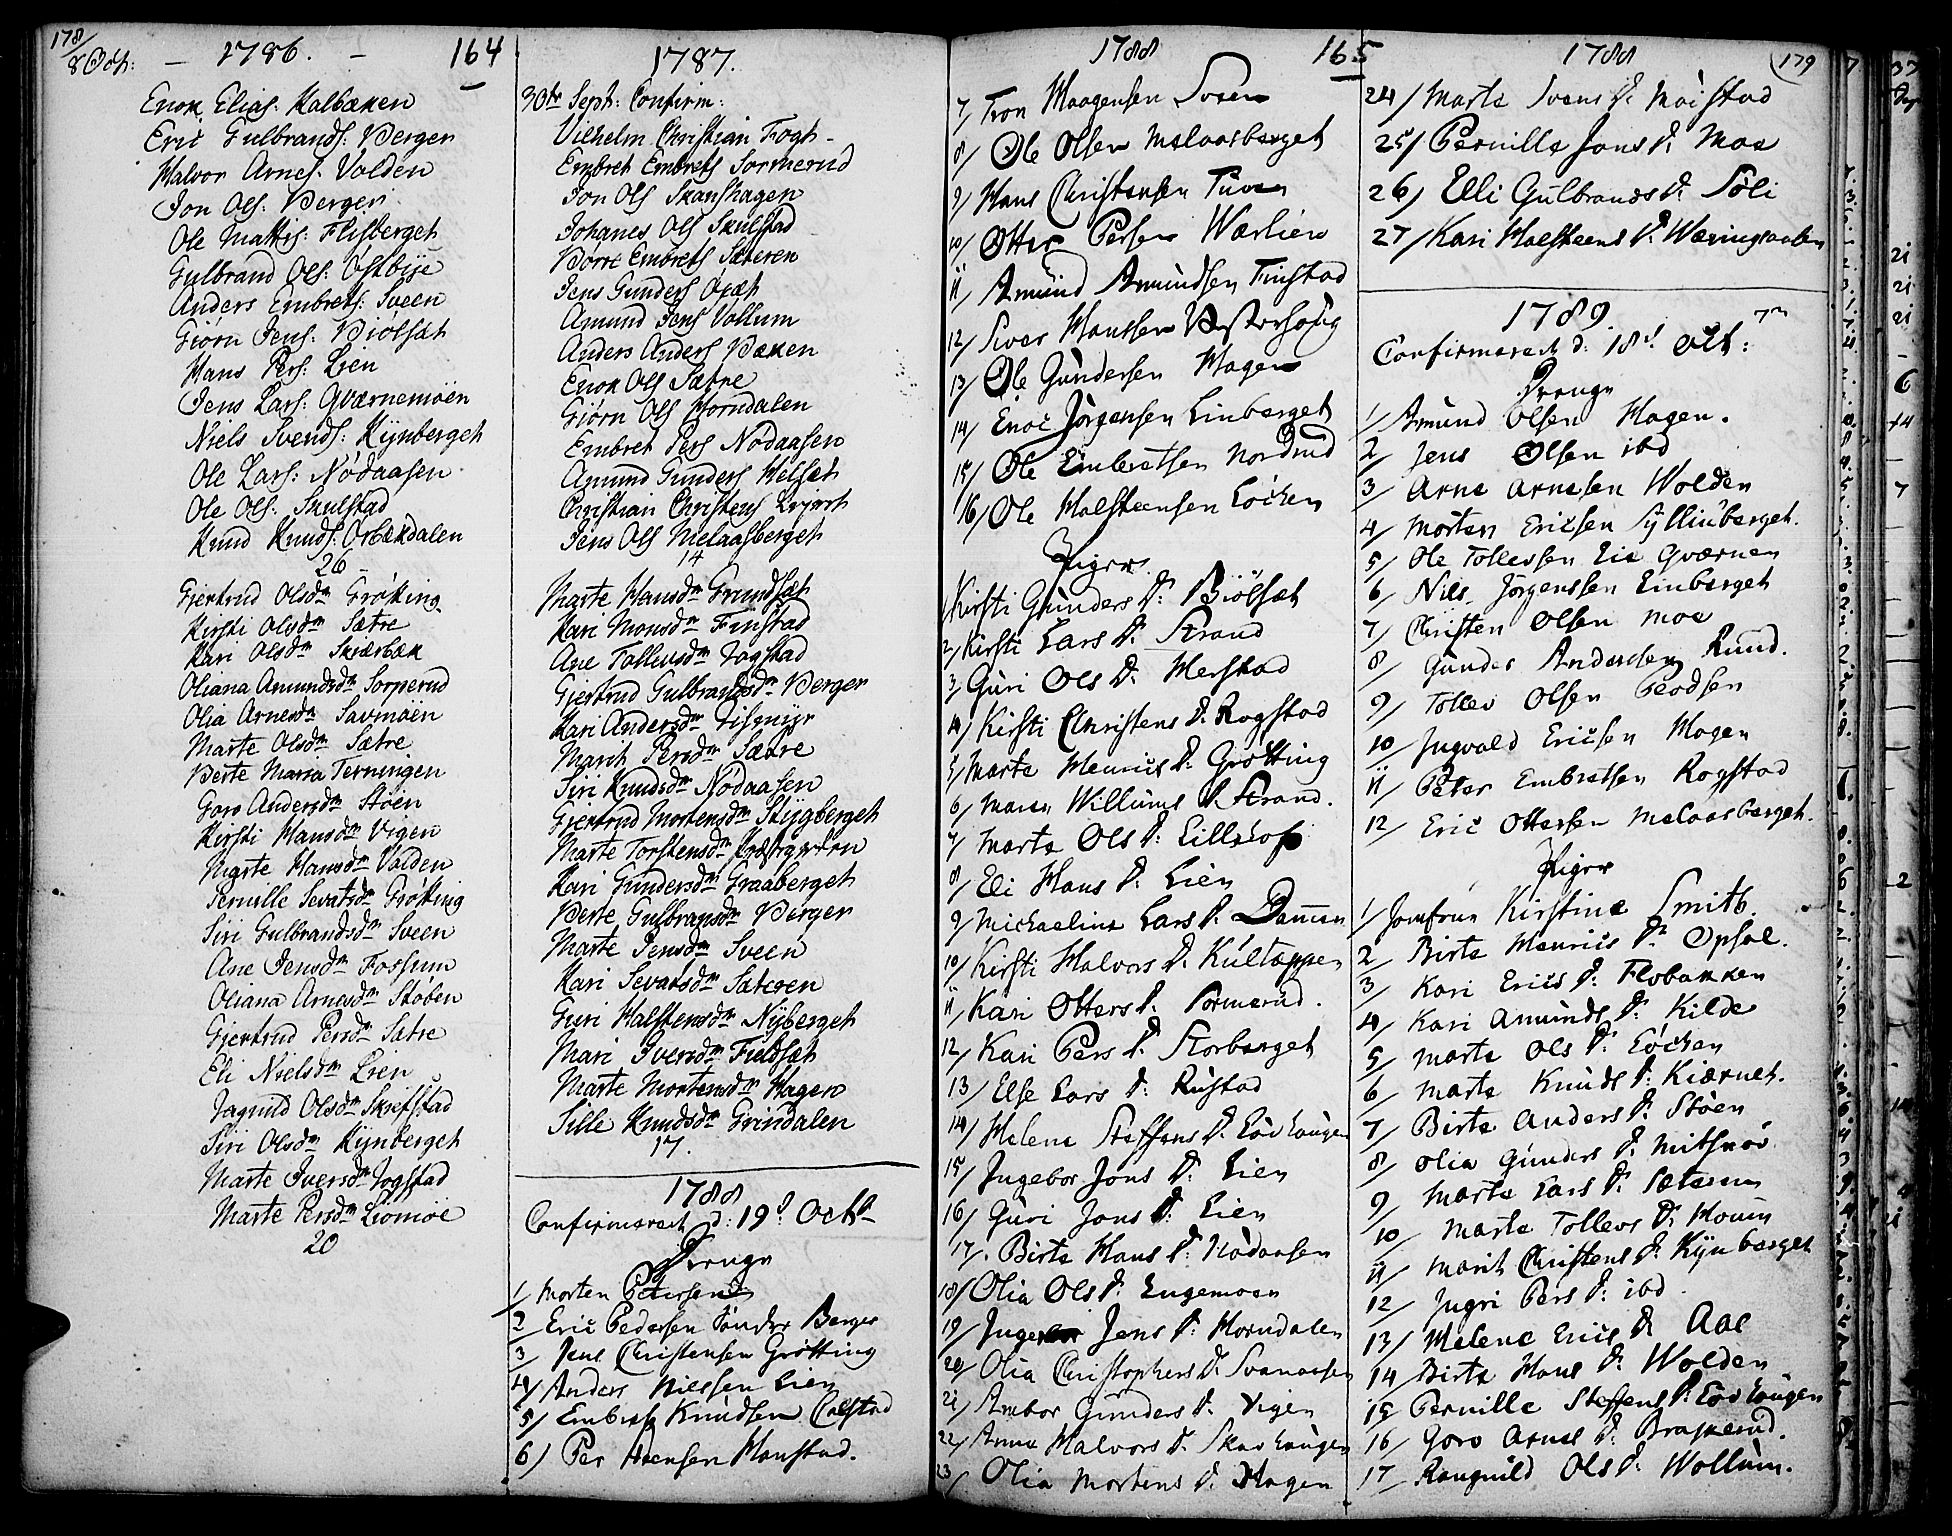 178/
8 Oct: — 1786. — 164
Enok Elias: Kalbæken
Eric Gulbrands: Berger
Halvor Arnes: Volden
Jon Ols: Berger
Ole Mattis: Flisberget
Gulbrand Ols: Østbÿe
Anders Embrets: Sveen
Giörn Jens: Biölsæt
Hans Pers: Lien
Jens Lars: Qværnemöen
Niels Svends: Kÿnberget
Ole Lars: Nödaasen
Ole Ols: Skulstad
Knud Knuds: Orbækdalen
26
Giertrud Olsdm Gröting
Kirsti Olsdm Sætre
Kari Olsdm Skiærbæk
Oliana Amundsdm Sorperud
Olia Arnesdm Savmöen
Marte Olsdm Sætre
Berte Maria Terningen
Goro Andersdm Stöen
Kirsti Hansdm Vigen
Marte Hansdm Volden
Pernille Sevatsdm Grötting
Siri Gulbrandsdm Sveen
Ane Jensdm Fossum
Oliana Arnesdm Stöben
Giertrud Persdm Sætre
Eli Nielsdm Lien
Jagnild Olsdm Skiefstad
Siri Olsdm Kÿnberget
Marte Iversdm Jogstad
Marte Persdm Liomöe
20
1787.
30te Sept: Confirm:
Vilhelm Christian Fogt
Embret Embrets Sormerud
Jon Ols Skanshagen
Johanes Ols Skulstad
Börre Embrets Sæteren
Jens Gunders Öxæt
Amund Jens Vollum
Anders Anders Bæken
Enok Ols Sætre
Giörn Ols Horndalen
Embret Pers Nödaasen
Amund Gunders Melsæt
Christian Christens
Jens Ols Melaasberget
14
Marte Hansdm Grundsæt
Kari Monsdm Finstad
Ane Tollevsdm Jogstad
Giertrud Gulbrandsdm Berger
Kari Andersdm
Marit Persdm Sætre
Siri Knudsdm Nödaasen
Giertrud Mortensdm Stÿgberget
Marte Torstensdm Præstgarden
Kari Gundersdm Graaberget
Berte Gulbransdm Berger
Marte Jensdm Sveen
Kari Sevatsdm Sæteren
Guri Halstensdm Nÿberget
Mari Iversdm Fuldsæt
Marte Mortensdm Hagen
Sille Knudsdm Grindalen
17.
1788
Confirmeret d: 19d Octb
Drenge
1/ Morten Petersen
2 Eric Pedersen Sönder Berger
3 Jens Christensen Grötting
4/ Anders Nielsen Lien
5/ Embret Knudsen Colstad
6/ Per Steensen Hanstad.
1788 165
7/ Tron Maagensen Soren
8/ Ole Olsen Melaasberget
9/ Hans Christensen Tuven
10/ Otter Persen Wærlien
11/ Amund Amundsen Finstad
12/ Siver Hansen Westerhoug
13/ Ole Gundersen Hagen
14/ Enoc Jörgensen Linberget
15/ Ole Embretsen Nordrud
16/ Ole Halsteensen Löcken
Piger
1/ Kirsti Gunders D: Biölsæt
2/ Kirsti Lars D: Strand
3/ Guri Ols D: Herstad
4/ Kirsti Christens D: Rogstad
5/ Marte Henrics D: Grötting
6/ Maren Willums D: Strand.
7/ Marte Ols D: Lillehof
8/ Eli Hans D: Lien
9/ Michaeline Lars D: Dammen
10/ Kirsti Halvors D: Kultæppen
11/ Kari Otters D: Sormerud.
12/ Kari Pers D: Storberget
13/ Else Lars D: Rustad
14/ Helene Steffens D: Löchougen
15/ Ingebor Jons D: Lien
16/ Guri Jons D: Lien
17/ Birte Hans D: Nödaasen
18/ Olia Ols D: Engemoen
19/ Inger Jens D: Horndalen
20/ Olia Christophers D: Svenaasen
21/ Ambor Gunders D: Vigen
22/ Anne Halvors D: Skavhaugen
23/ Olia Mortens D: Hagen
1788 179
24/ Marte Svens D: Moistad
25/ Pernille Jons D: Moe
26/ Elli Gulbrands D: Söli
27/ Kari Halsteens D: Wæringsaalen
1789.
Confirmeret d: 18d Oct:
Drenge
1/ Amund Olsen Hagen.
2/ Jens Olsen ibd
3/ Arne Arnesen Wolden
4/ Morten Ericsen Syllinberget.
5/ Ole Tollevsen Lie Qværnen
6/ Nils Jörgenssen Linberget
7/ Christen Olsen Moe
8/ Gunder Andersen Ruud.
9/ Tollev Olsen
10/ Ingvald Ericsen Hagen
11/ Peter Embretsen Rogstad
12/ Eric Ottersen Melaasberget.
Piger
1/ Jomfrue Kirstine Smith.
2/ Birte Henrics D: Opsal.
3/ Kari Erics D: Flobækken
4/ Kari Amunds D: Kilde
5/ Marte Ols D: Löcken
6/ Marte Knuds D: Kiærnet.
7/ Birte Anders D: Stöen
8/ Olia Gunders D: Mitskov
9/ Marte Lars D: Sæteren
10/ Marte Tollevs D: Houin
11/ Marit Christens D: Kÿnberget
12/ Ingri Pers D: ibd
13/ Helene Erics D: Aas
14/ Birte Hans D: Wolden
15/ Pernille Steffens D: Löchougen
16/ Goro Arnes D: Braskerud.
17/ Rangnild Ols D: Wollum.